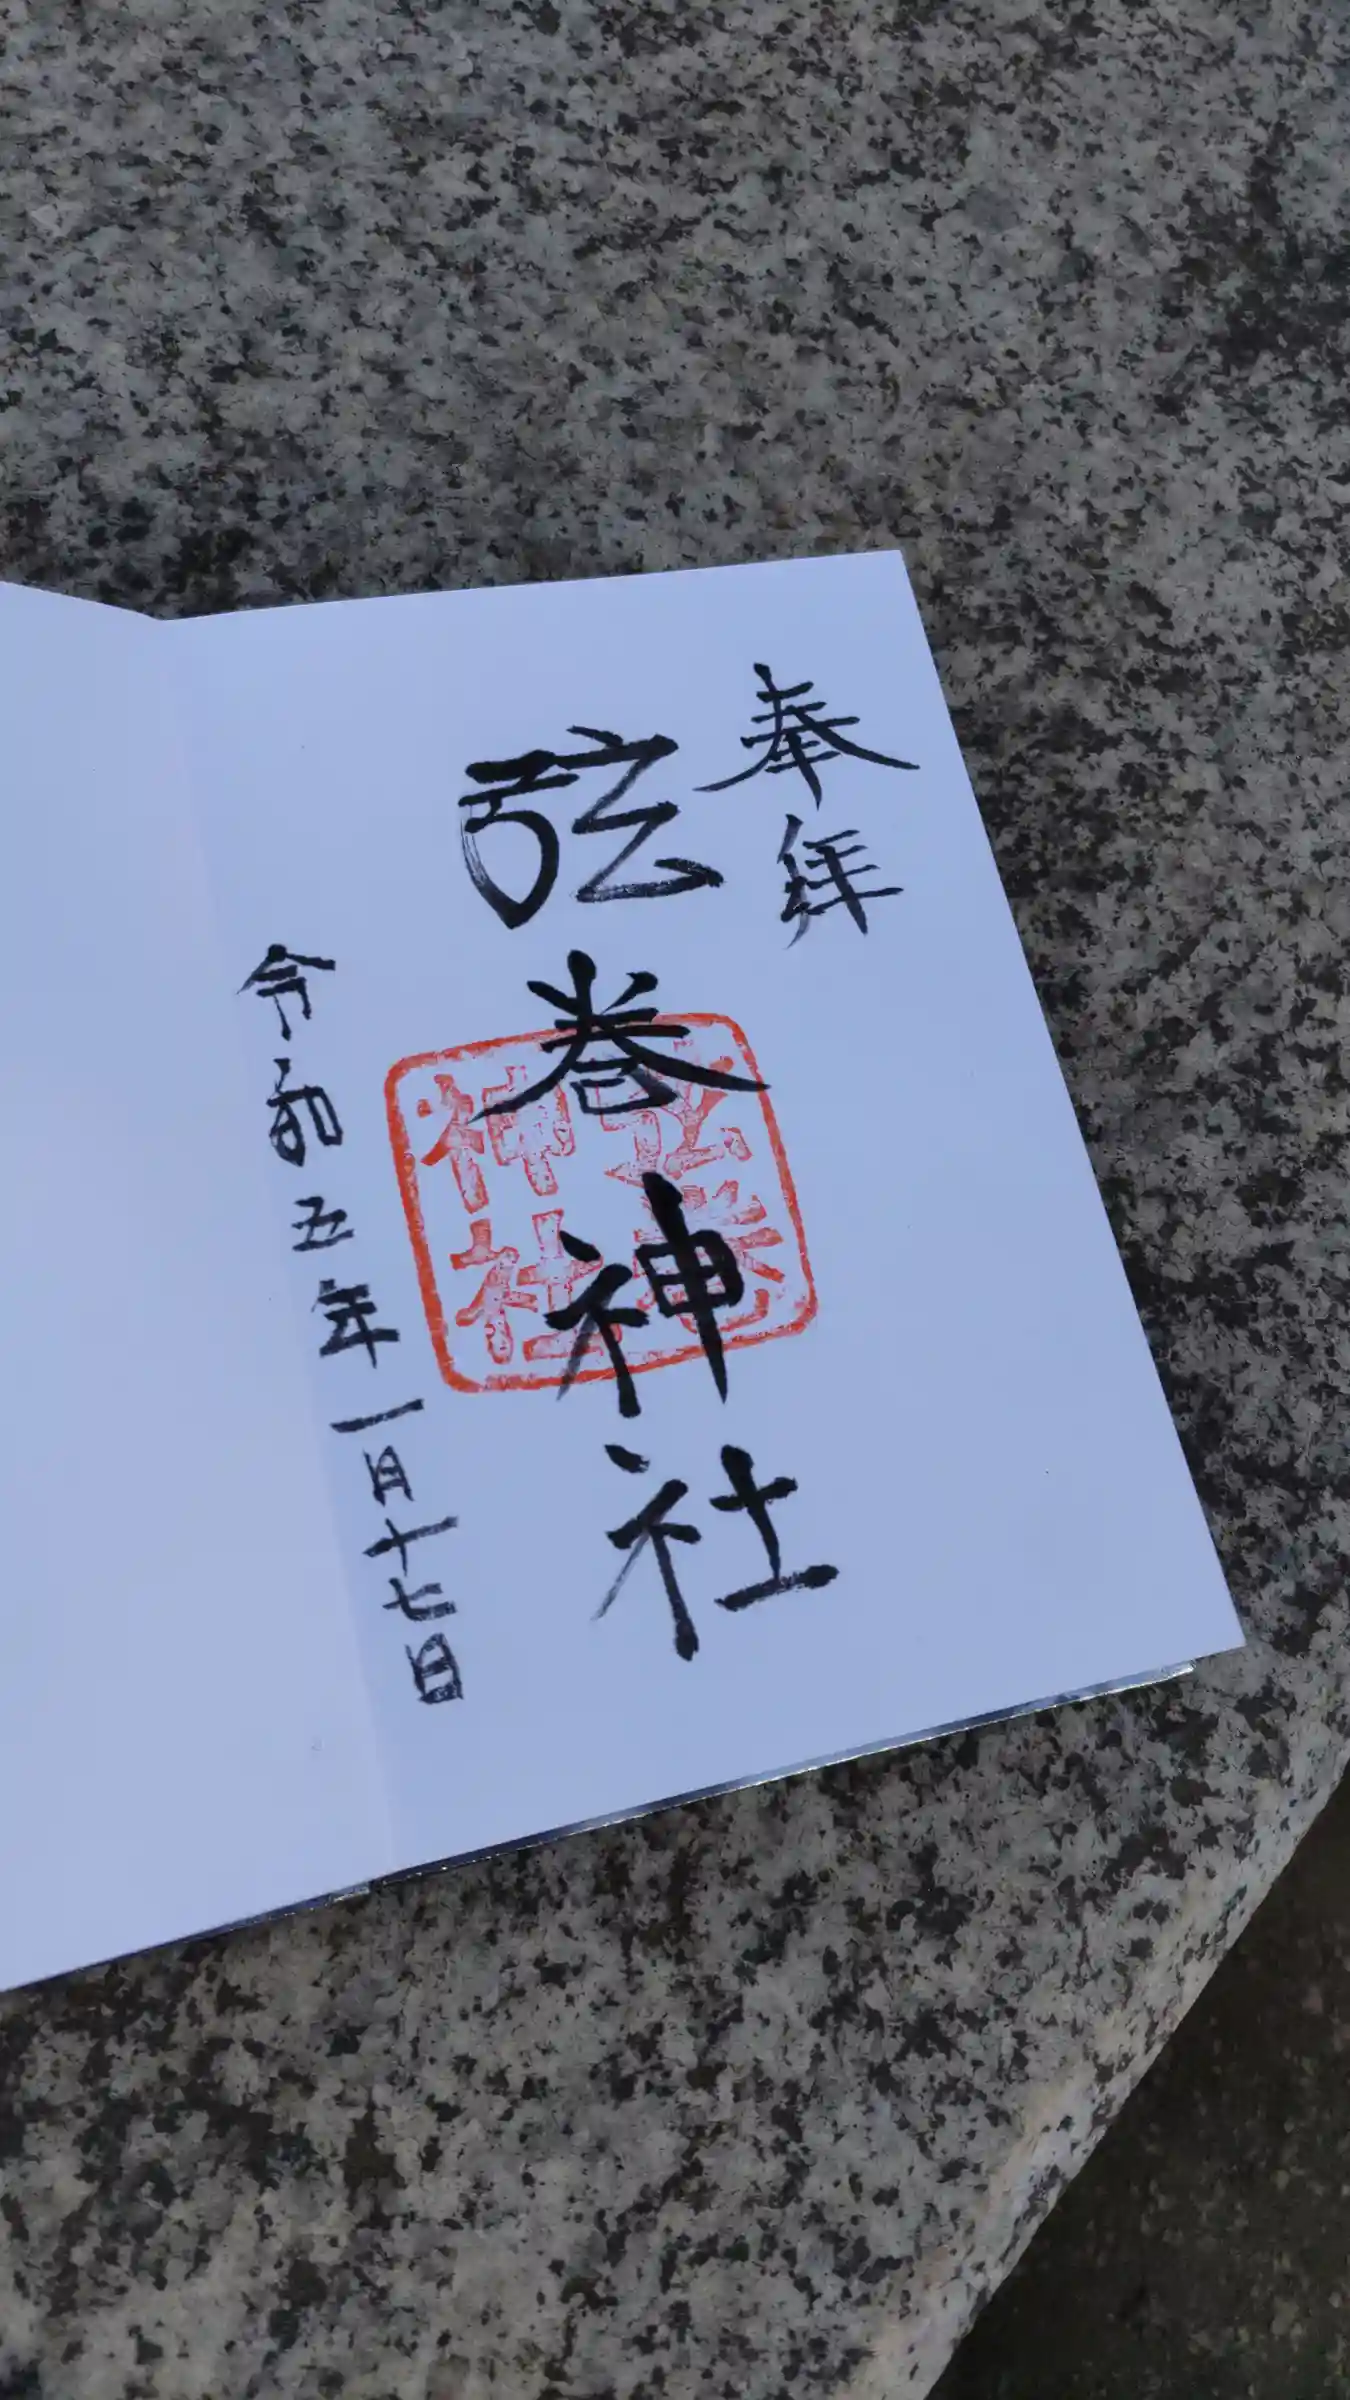 奉拝
弦巻神社
弦巻
神社
令和五年一月十七日